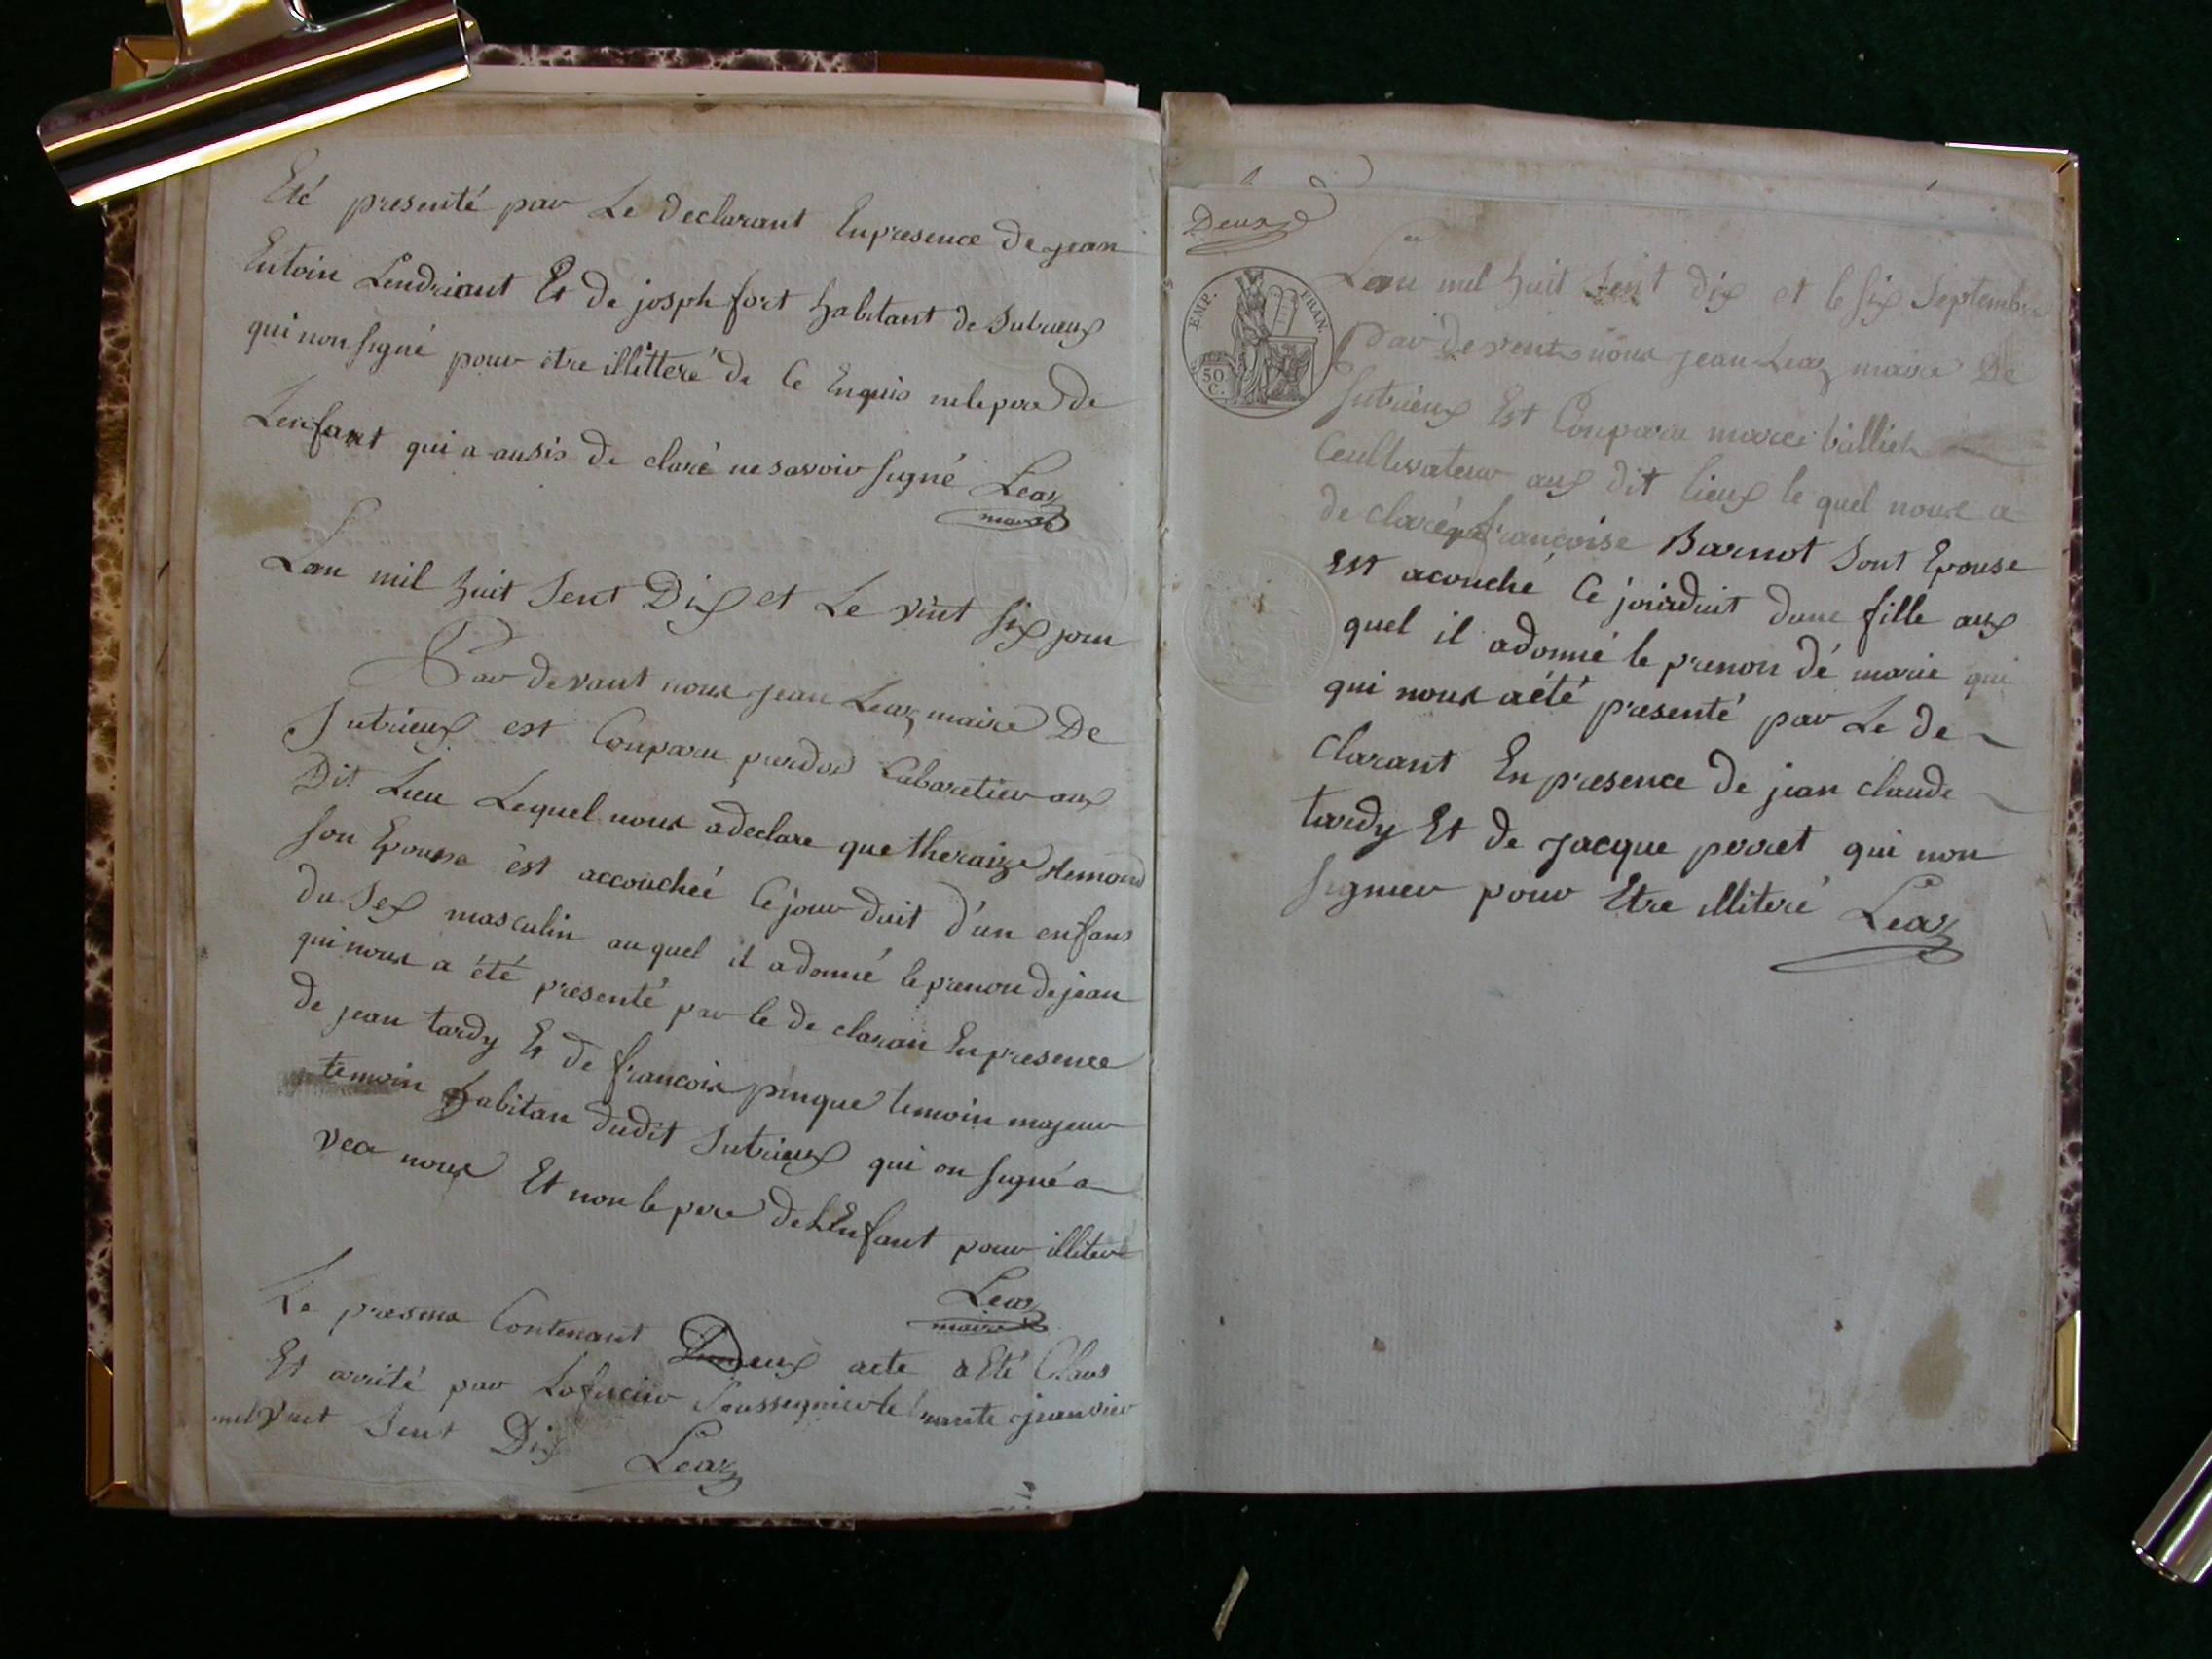 Eté presenté par Le declarant Enpresence de jean
Entoin Lendriant Et de josph fort habitant de Sutrieux
qui non signé pour être illitteré de Ce Enquis ne le pere de
Lenfant qui a ausis de claré ne savoir signé Lea
maire
Lan mil huit Sent Dix et Le vint six jour
Par devant nous jean Lea maire De
Sutrieux est Conparu Cabaretier aux
Dit Lieu Lequel nous a declare que theraize
son Epouse est accouchéé Ce jour duit d'un enfans
du Sex masculin au quel il a donné le prenon de jean
qui nous a été presenté par le de claran Enpresence
de jean tardy Et de francois pinque temoin majeur
temoin habitan dudit Sutrieux qui on signé a
vec nous Et non le pere de LEnfant pour illiter
Lea
maire
Le Contenant Deux acte a Eté Claus
Et arrété par le janvier
mil Sent Dix Lea
Deux
EMP. FRAN.
50 C.
Lan mil huit Sent dix et le six Septembre
Par devent nous jean Lea maire De
Sutrieux Est Conparu
Ceultivateur aux dit lieux le quel nous a
de claré que francoise Barnot Sont Epouse
Est acouché Ce jourduit dune fille aux
quel il a donné le prenon dé marie qui
qui nous a été presenté par Le de
clarant En presence de jean claude
tardy Et de jacque perret qui non
signer pour Etre illiteré Lea